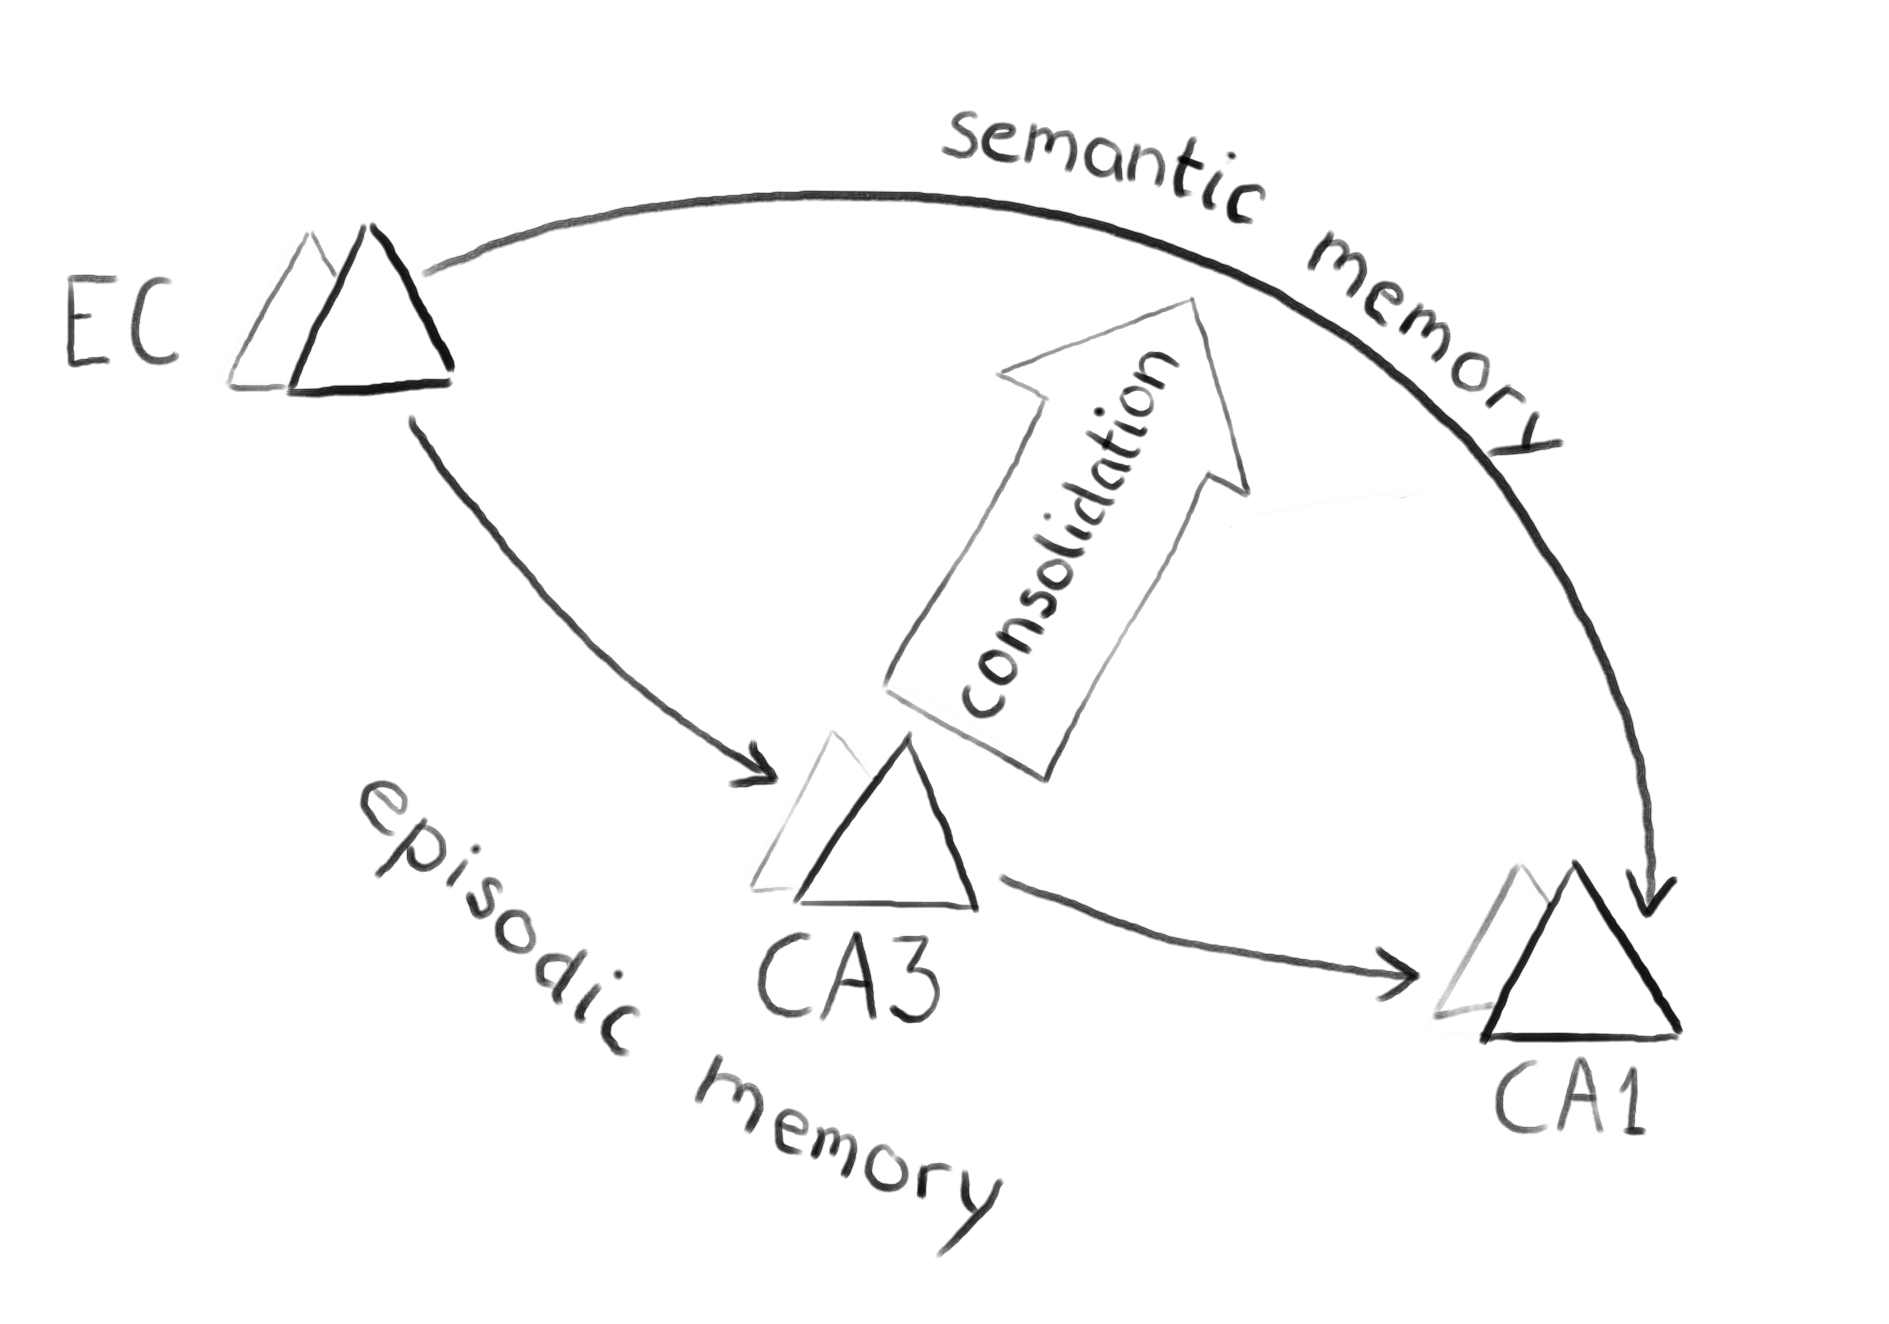 semantic memory
EC
consolidation
episodic memory
CA3
CA1